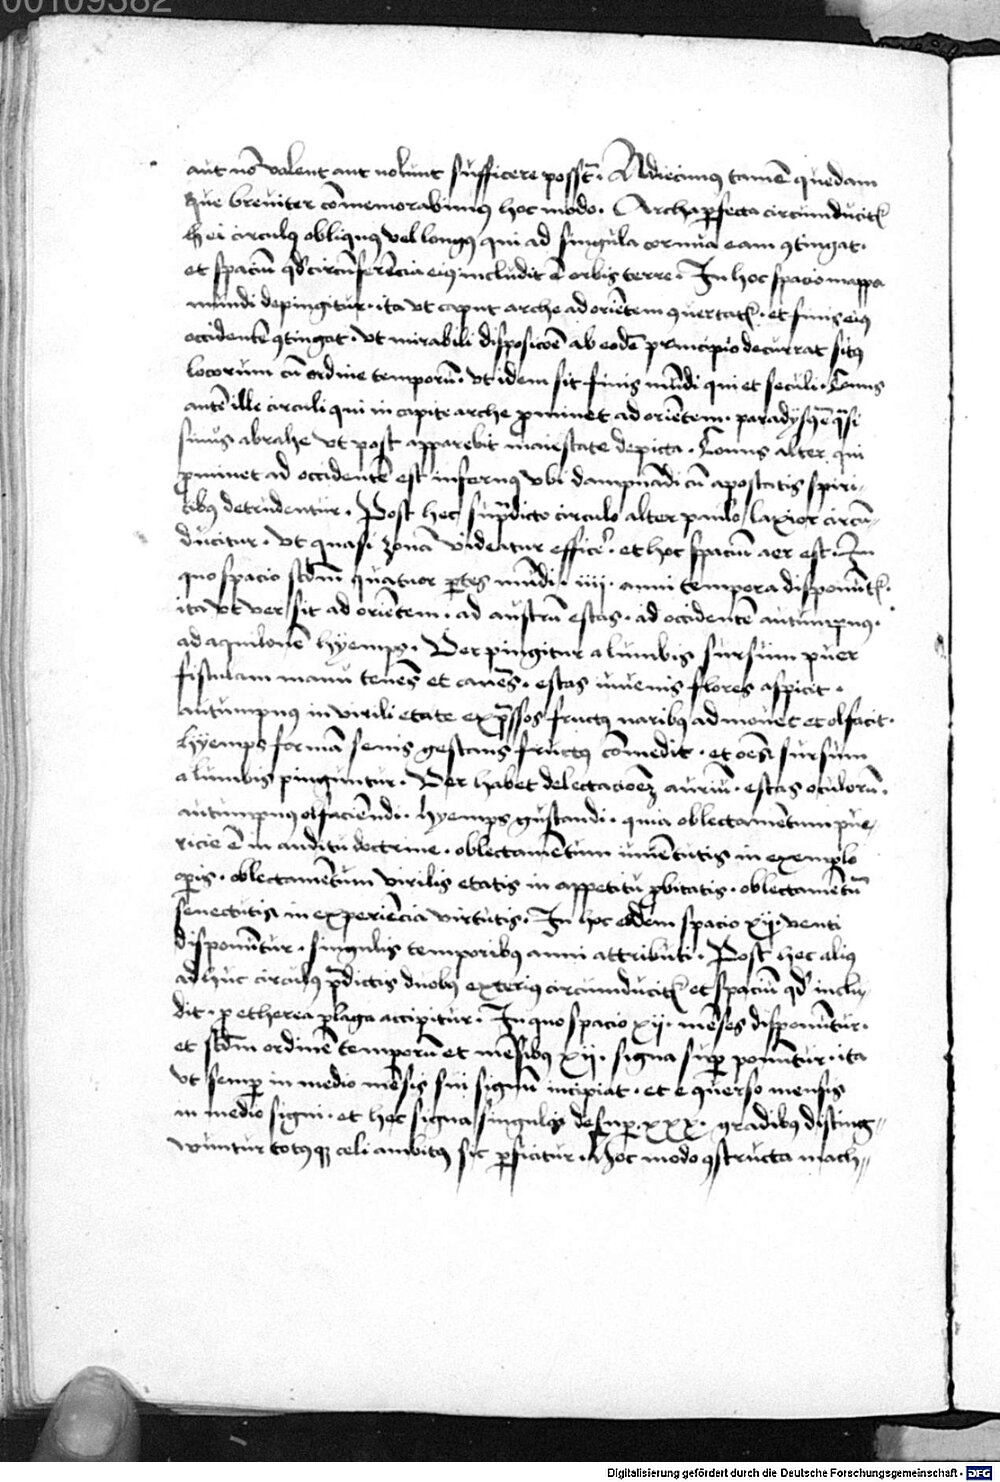 00109382
aut nō valent aut nolunt sufficere possēt. Adiecimus tamē quedam
que breuiter cōmemorabimus hoc modo. Archa ꝑfecta circumducitr̄
hei circulꝯ obliquꝯ vel longꝯ qui ad singula cornua eam ꝯtingat.
et spaciū qd̄ circūferēcia eiꝯ includit ē orbis terre. In hoc spacio mappa
mundi depingitur. ita vt caput arche ad oriētem ꝯuertatr̄. et finis eiꝯ
occidentē ꝯtingat. vt mirabili disposicōe ab eodē principio decurrat sitꝯ
locorum cū ordine temporū. vt idem sit finis mūdi qui et seculi. Conus
autē ille circuli qui in capite arche ꝓminet ad oriētem. paradysꝯ ē q̄si
sinus abrahe vt post apparebit maiestate depicta. Conus alter qui
ꝓminet ad occidentē est infernꝯ vbi dampnādi cū apostatis spiri-
tibꝯ detrudentur. Post hec sup̄dicto circulo alter paulo laxior circū-
ducitur. vt quasi zonā videatur efficer̄. et hoc spaciū aer est. In
quo spacio scd̄m quatuor ꝑtes mūdi. iiii. anni tempora disponūtr̄.
ita vt ver sit ad oriētem. ad austrū estas. ad occidentē autumpnꝯ.
ad aquilonē hyemps. Ver pingitur a lumbis sursum puer
fistulam manu tenēs et canēs. estas iuuenis flores aspicit.
autumpnꝯ in virili etate exp̄ssos fructꝯ naribꝯ admouet et olfacit.
hyemps formā senis gestans fructꝯ cōmedit. et oēs sursum
a lumbis pinguntur. Ver habet delectacioēꝫ auriū. estas oculorū.
autumpnꝯ olfaciēndi. hyemps gustandi. quia oblectamētum pue-
ricie ē in auditu doctrine. oblectamētum iuuētutis in exemplo
oꝑis. oblectamētum virilis etatis in appetitu ꝓbitatis. oblectamētū
senectutis in experiēcia virtutis. In hoc eodem spacio xij. venti
disponūtur. singulis temporibꝯ anni attributi. Post hec aliꝯ
ad huc circulꝯ p̄dictis duobꝯ exteriꝯ circumducitr̄ et spaciū qd̄ inclu-
dit. ꝑ etherea plaga accipitur. In quo spacio xij. mēses disponūtur.
et scd̄m ordinē temporū et mēsibꝯ xij. signa suꝑ ponūtur. ita
vt semꝑ in medio mēsis sui signū incipiat. et e ꝯuerso mensis
in medio signi. et hec signa singulis desuꝑ. xxx. gradibꝯ disting-
wuntur totꝯqꝫ celi ambitꝯ sic ꝑficitur. Hoc modo ꝯstructa mach-
Digitalisierung gefördert durch die Deutsche Forschungsgemeinschaft - DFG